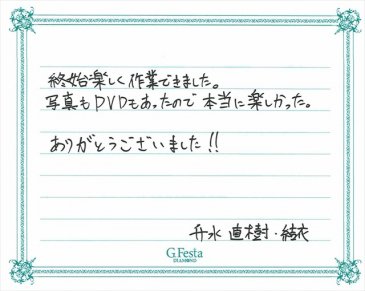 終始楽しく作業できました。
写真もDVDもあったので本当に楽しかった。
ありがとうございました!!
舟水 直樹・結衣
G.Festa
DIAMOND